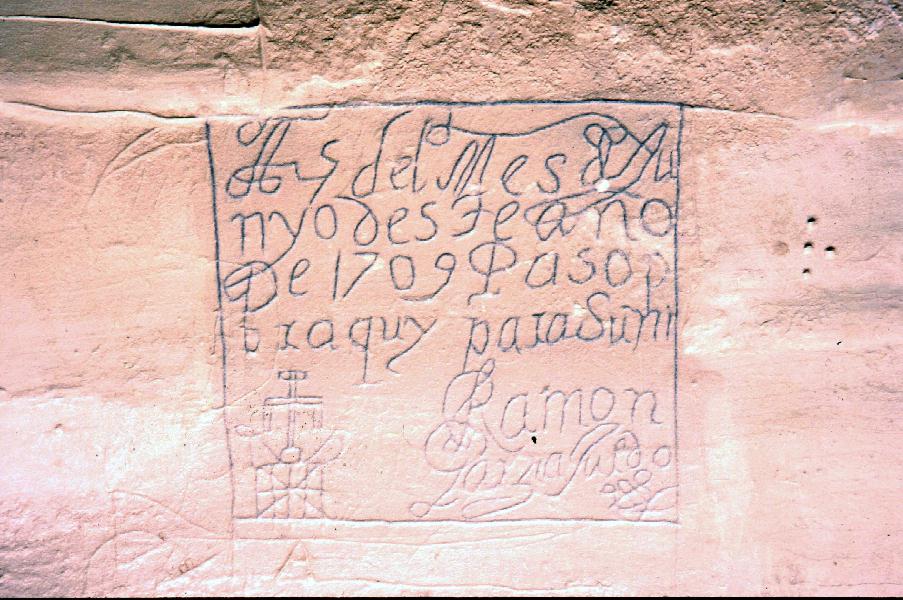 A 5 del Mes de Ju
nyo deste año
De 1709 Paso p
or aquy para Suñi
Ramon
Garzia Jurado